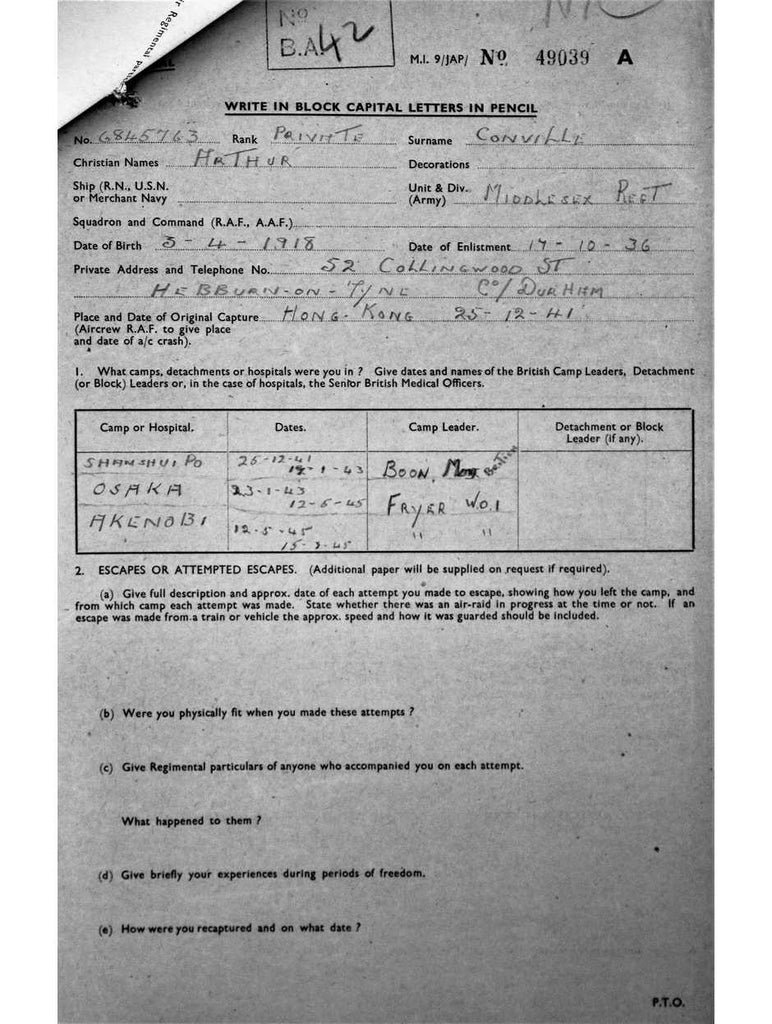 ir Regimental Par
No
B.A 42
M.I. 9/JAP/ No. 49039 A
WRITE IN BLOCK CAPITAL LETTERS IN PENCIL
No. 6845763 Rank PRIVATE Surname CONVILLE
Christian Names ARTHUR Decorations
Ship (R.N., U.S.N. or Merchant Navy Unit & Div. (Army) MIDDLESEX REGT
Squadron and Command (R.A.F., A.A.F.)
Date of Birth 3-4-1918 Date of Enlistment 17-10-36
Private Address and Telephone No. 52 COLLINGWOOD ST
HEBBURN-ON-TYNE CO/DURHAM
Place and Date of Original Capture HONG-KONG 25-12-41
(Aircrew R.A.F. to give place
and date of a/c crash).
1. What camps, detachments or hospitals were you in ? Give dates and names of the British Camp Leaders, Detachment
(or Block) Leaders or, in the case of hospitals, the Senior British Medical Officers.
Camp or Hospital. Dates. Camp Leader. Detachment or Block Leader (if any).
SHAMSHUI PO 25-12-41
19-1-43 BOON,
OSAKA 23-1-43
12-5-45 FRYER W.O.1
AKENOBI 12-5-45 " "
15-9-45
2. ESCAPES OR ATTEMPTED ESCAPES. (Additional paper will be supplied on request if required).
(a) Give full description and approx. date of each attempt you made to escape, showing how you left the camp, and
from which camp each attempt was made. State whether there was an air-raid in progress at the time or not. If an
escape was made from a train or vehicle the approx. speed and how it was guarded should be included.
(b) Were you physically fit when you made these attempts ?
(c) Give Regimental particulars of anyone who accompanied you on each attempt.
What happened to them ?
(d) Give briefly your experiences during periods of freedom.
(e) How were you recaptured and on what date ?
P.T.O.